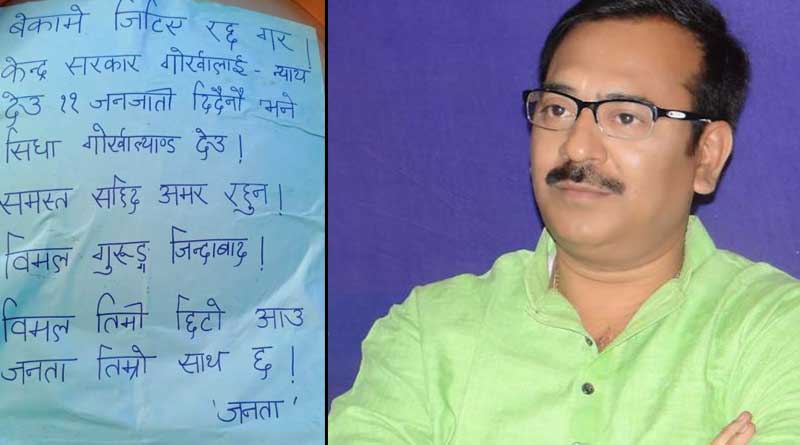 बेकामे जिटिए रद्द गर !
केन्द्र सरकार गोर्खालाई - न्याय
देउ ११ जनजाती दिदैनौ भने
सिधा गोर्खाल्याण्ड देउ !
समस्त सहिद अमर रहुन !
विमल गुरूङ्ग जिन्दाबाद !
विमल तिमी छिटो आउ
जनता तिम्रो साथ छ !
'जनता'